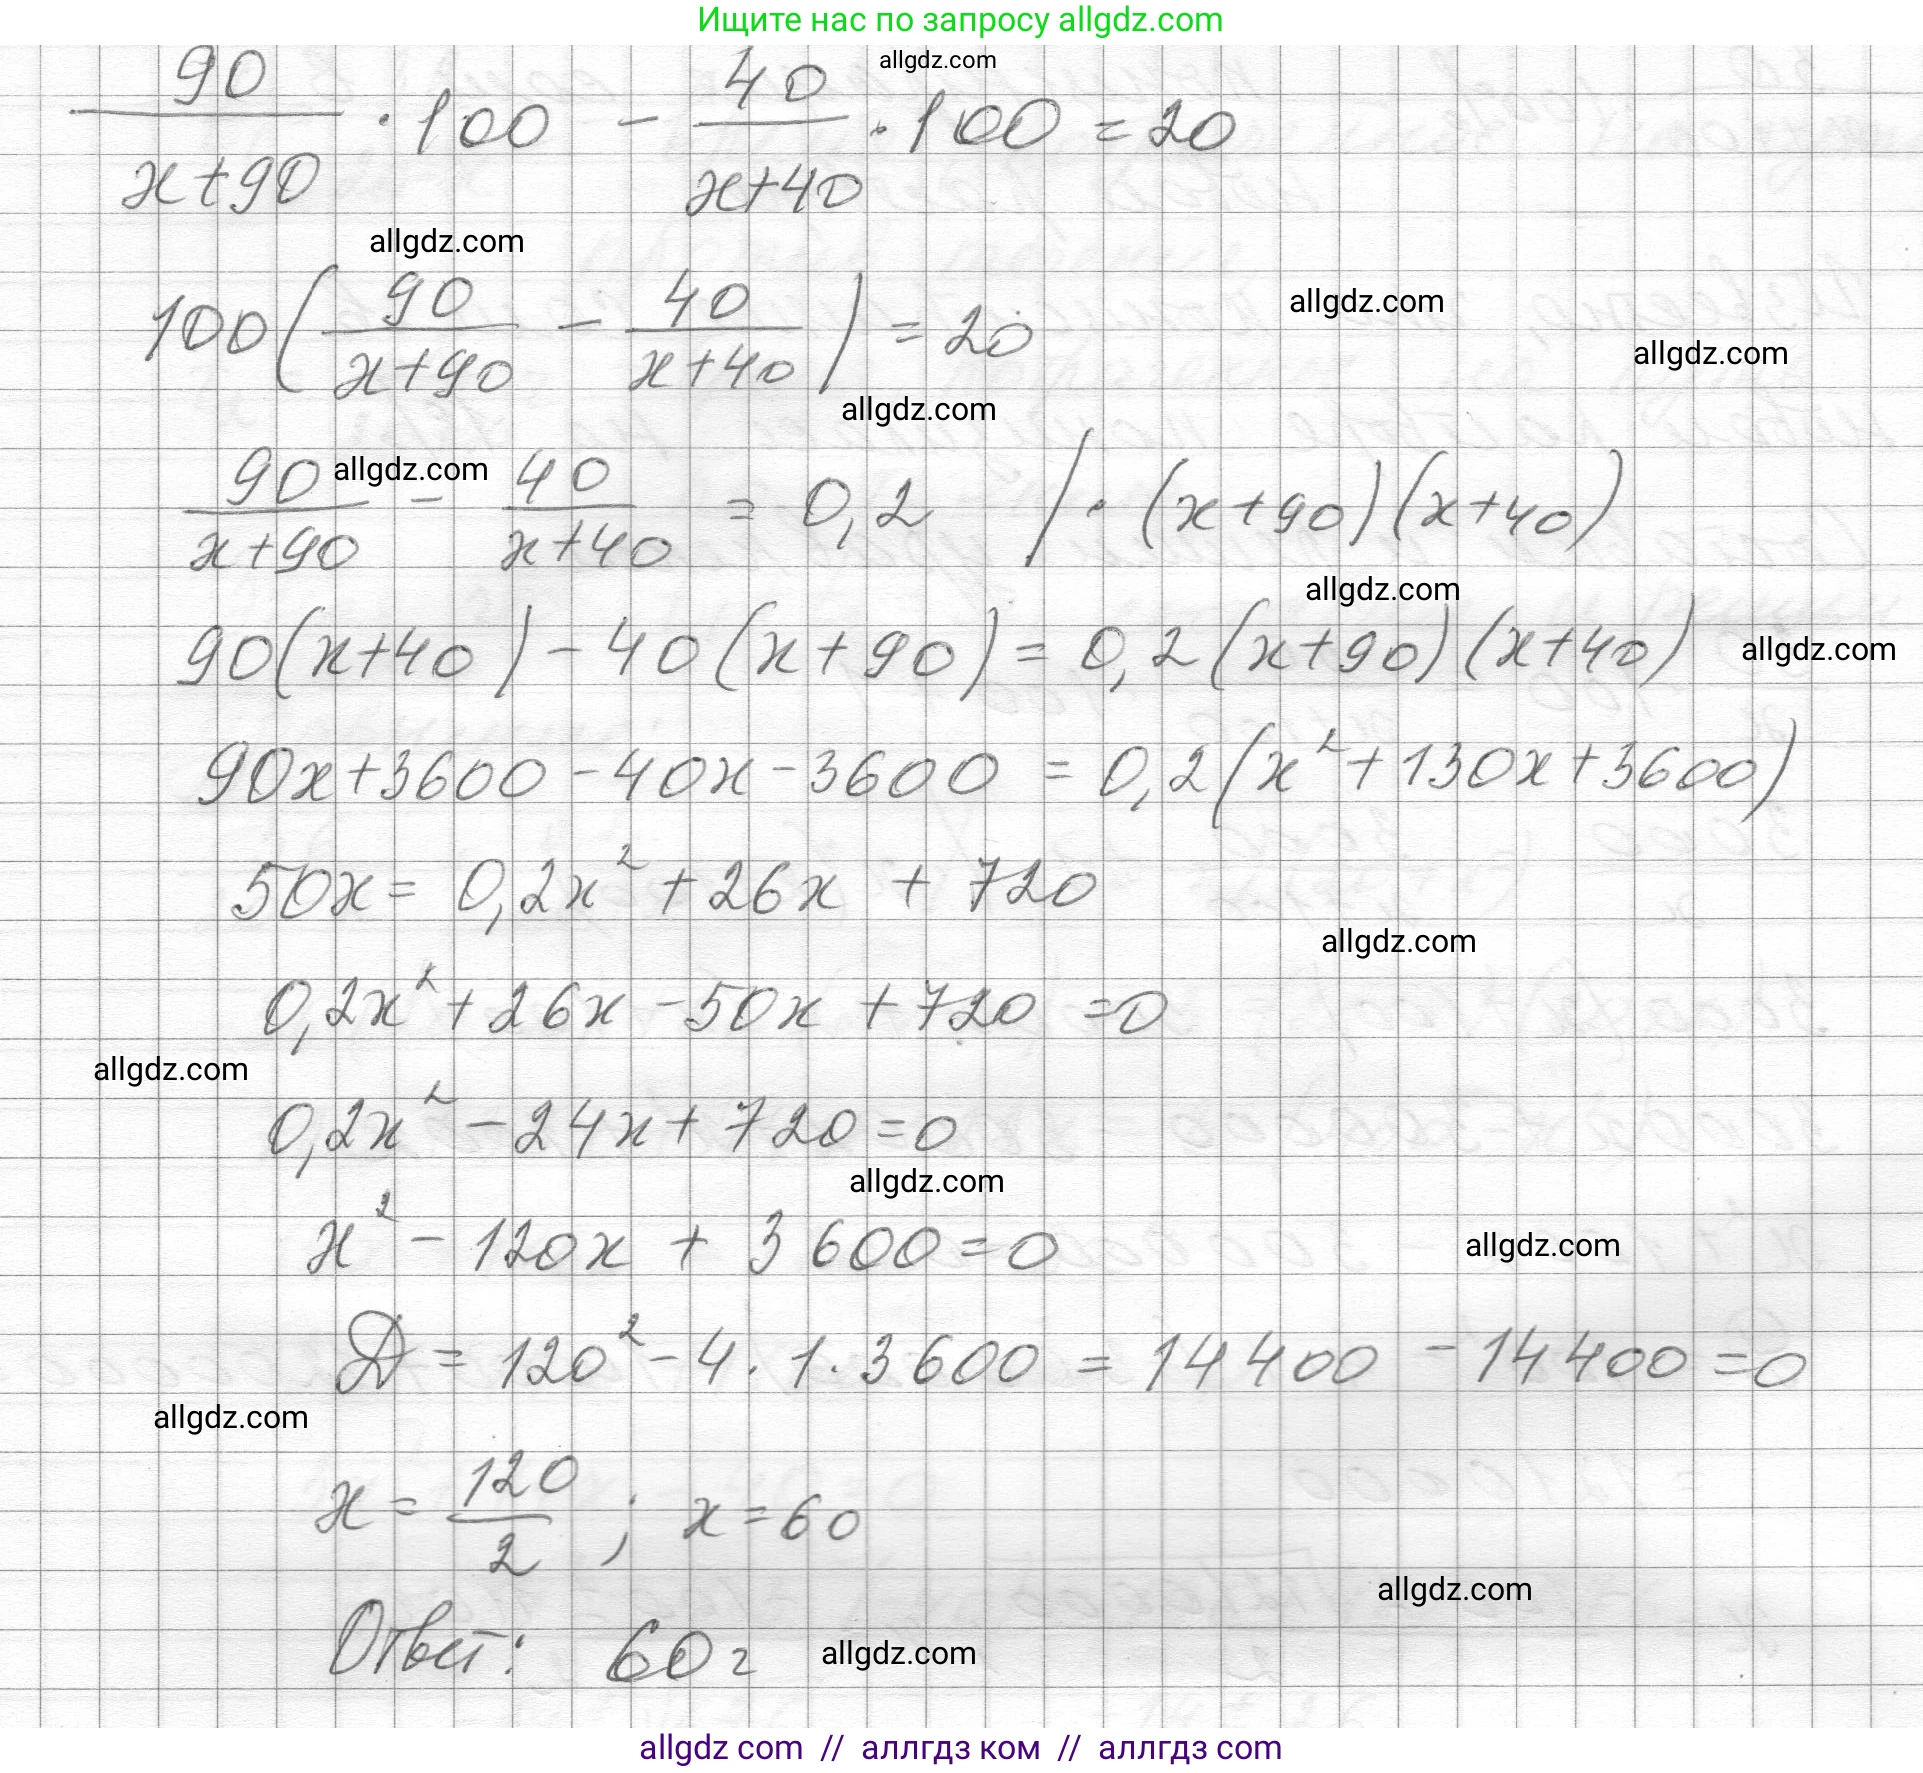 Ищите нас по запросу allgdz.com
allgdz.com
90/(x+90) · 100 − 40/(x+40) · 100 = 20
allgdz.com
100(90/(x+90) − 40/(x+40)) = 20
allgdz.com
allgdz.com
allgdz.com
90/(x+90) − 40/(x+40) = 0,2 / · (x+90)(x+40)
allgdz.com
allgdz.com
90(x+40) − 40(x+90) = 0,2(x+90)(x+40)
allgdz.com
90x+3600−40x−3600 = 0,2(x²+130x+3600)
50x = 0,2x² + 26x + 720
allgdz.com
0,2x² + 26x − 50x + 720 = 0
allgdz.com
0,2x² − 24x + 720 = 0
allgdz.com
x² − 120x + 3600 = 0
allgdz.com
Д = 120² − 4 · 1 · 3600 = 14400 − 14400 = 0
allgdz.com
x = 120/2 ; x = 60
allgdz.com
Ответ: 60 г
allgdz.com
allgdz com // аллгдз ком // аллгдз com